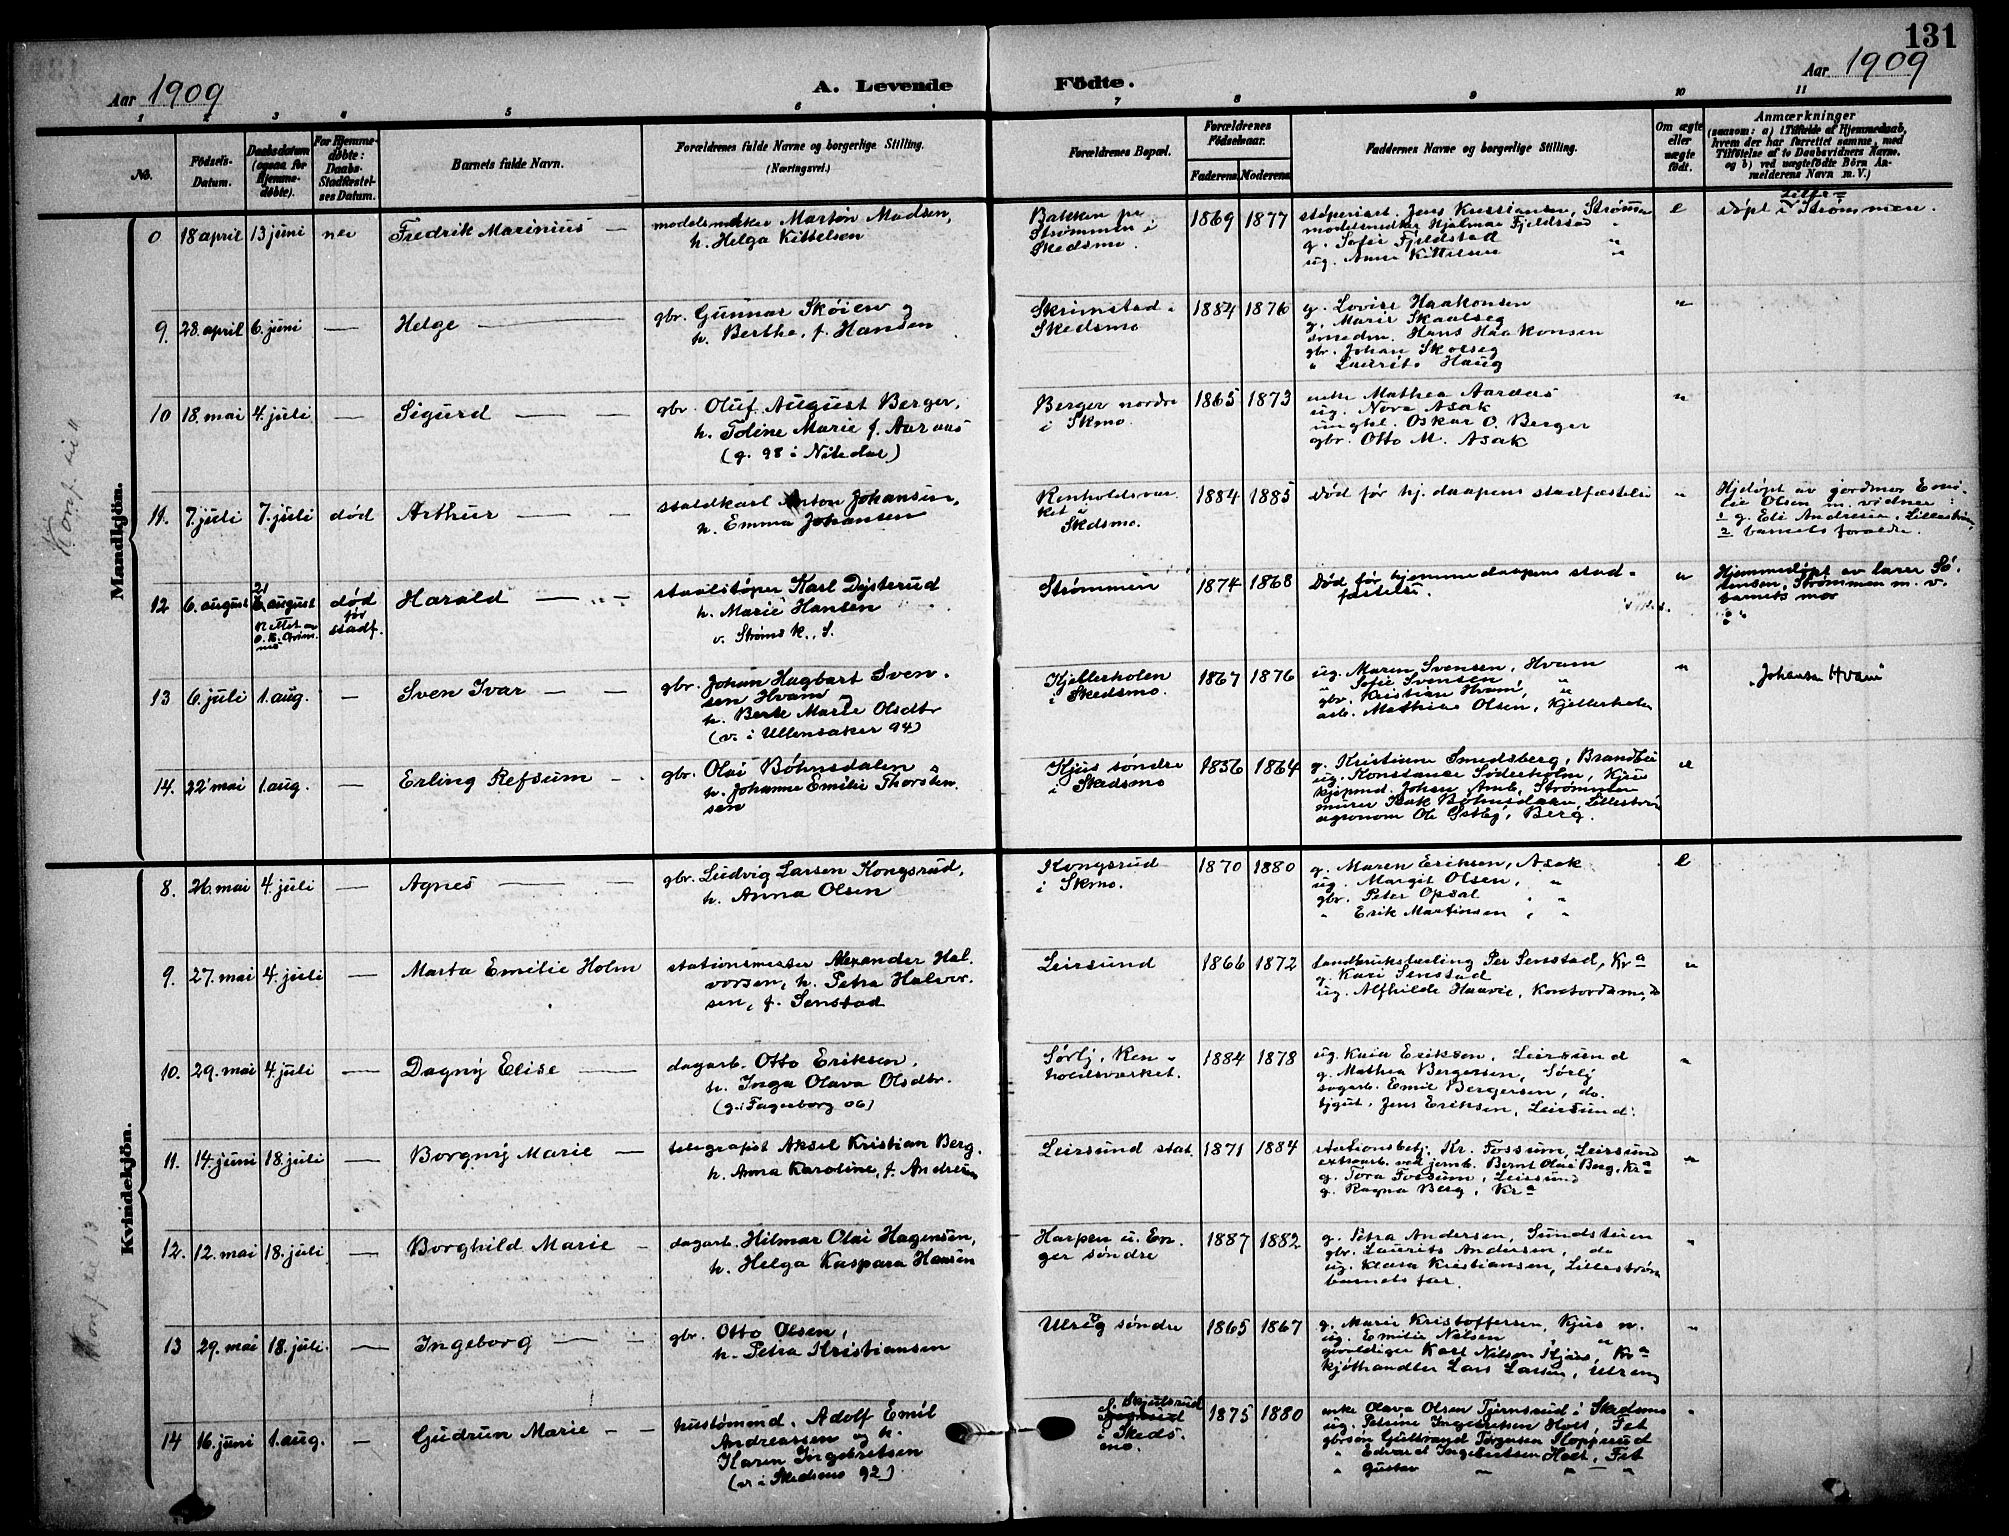 131
Aar 1909
A. Levende
Födte.
Aar 1909
1 2 3 4 5 6 7 8 9 10 11
No.
Födsels-
Datum.
Daabsdatum
(ogsaa for
Hjemme-
døbte).
For Hjemme-
døbte:
Daabs-
Stadfæstel-
ses Datum.
Barnets fulde Navn.
Forældrenes fulde Navne og borgerlige Stilling.
(Næringsvei.)
Forældrenes Bopæl.
Forældrenes
Födselsaar.
Faderens. Moderens.
Faddernes Navne og borgerlige Stilling.
Om ægte
eller
uægte
født.
Anmærkninger
(saasom: a) i Tilfælde af Hjemmedaab,
hvem der har forrettet samme, med
Tilföielse af to Daabsvidners Navne,
og b) ved uægtefödte Börn An-
melderens Navn m. V.)
Mandkjön.
Konf. til 11
18 april 13 juni nei Fredrik Marinius —
modelsnedker Martin Madsen,
h. Helga Kittelsen
Bakken pr.
Strømmen i
Skedsmo.
1869 1877
støperiarb. Jens Kristiansen, Strømm
modelsnedker Hjalmar Fjeldstad "
g. Sofie Fjeldstad "
ug. Anna Kittelsen "
e
Lille-
døpt i Strømmen.
9. 28. april 6. juni — Helge —
gbr. Gunnar Skøien og
h. Berthe, f. Hansen
Skrimstad i
Skedsmo
1884 1876
g. Lovise Haakonsen
g. Marie Skaalseg
smedm. Hans Haakonsen
gbr. Johan Skolseg
" Laurits Haug
"
10 18. mai 4. juli — Sigurd — —
gbr. Oluf August Berger,
h. Toline Marie f. Aaraas
(g. 98 i Nitedal)
Berger nordre
i Skmo.
1865 1873
enke Mathea Aaraas
ug. Nora Asak
ungkl. Oskar O. Berger
gbr. Otto M. Asak
"
11. 7. juli 7. juli død Arthur — —
staldkarl Anton Johansen,
h. Emma Johansen
Renholdsver-
ket i
Skedsmo.
1884 1885
død før hj. daapens stadfæstelse
"
Hjdøpt av jordmor Emi-
lie Olsen m. vidner:
1 g. Eli Andresen, Lillestrøm
2 barnets forældre.
12 6. august 21 august død
før
stadf.
Harald — —
staalstøper Karl Dysterud
h. Marie Hansen
v. Strøms k., S.
Strømmen
1874 1868
Død før hjemmedaapens stad-
fæstelse.
"
Hjemmedøpt av lærer Sø-
rensen, Strømmen m. v.
barnets mor
13 6. juli 1. aug. — Sven Ivar — —
gbr. Johan Hagbart Sven-
sen Hvam og
h. Berte Marie Olsdtr
(v. i Ullensaker 94)
Kjellerholen
i Skedsmo.
1867 1876
ug. Maren Svensen, Hvam
" Sofie Svensen "
gbr. Kristian Hvam, "
arb. Mathias Olsen, Kjellerholen
"
Johansen Hvam
14. 22 mai 1. aug. — Erling Refsum —
gbr. Olai Bøhnsdalen
h. Johanne Emilie Thorsten-
sen
Kjus søndre
i Skedsmo
1856 1864
g. Kristiane Smedsberg, Brandbu
ug. Konstance Söderholm, Kjus
kjøpmd. Johan Amb, Strømmen
murer Isak Bøhnsdalen, Lillestrøm
agronom Ole Østby, Berg.
Kvindekjön.
Konf. til 13
8. 26. mai 4. juli — Agnes — —
gbr. Ludvig Larsen Kongsrud,
h. Anna Olsen
Kongsrud
i Skmo.
1870 1880
g. Maren Eriksen, Asak
ug. Margit Olsen, "
gbr. Peter Opsal "
" Erik Martinsen, "
e
9. 27. mai 4. juli — Marta Emilie Holm
stationsmester Alexander Hal-
vorsen, h. Petra Halvor-
sen, f. Senstad
Leirsund
1866 1872
landbrukslærling Per Senstad, Kra
g. Kari Senstad
ug. Alfhilde Haavie, kontordame, do
"
10. 29. mai 4. juli — Dagny Elise —
dagarb. Otto Eriksen,
h. Inga Olava Olsdtr.
(g. i Fagerborg 06)
Sørlj, Ren-
holdsværket.
1884 1878
ug. Kaia Eriksen, Leirsund
g. Mathea Bergersen, Sørlj
sagarb. Emil Bergersen, do.
tjgut. Jens Eriksen, Leirsund.
"
11. 14. juni 18. juli — Borgny Marie —
telegrafist Aksel Kristian Berg,
h. Anna Karoline, f. Andresen
Leirsund stat.
1871 1884
stationsbetj. Kr. Fossum, Leirsund
extraarb. ved jernb. Bernt Olai Berg, Kra
g. Tora Fossum, Leirsund
g. Ragna Berg, Kra
"
12. 12. mai 18. juli — Borghild Marie —
dagarb. Hilmar Olai Hagensen,
h. Helga Kaspara Hansen
Harpen u. En-
ger søndre
1887 1882
g. Petra Andersen, Sundstuen
gbr. Laurits Andersen, do
ug. Klara Kristiansen, Lillestrøm
barnets far.
"
13 29. mai 18. juli. — Ingeborg — —
gbr. Otto Olsen,
h. Petra Kristiansen
Ulrug søndre
1865 1867
g. Marie Kristoffersen, Kjus n.
ug. Emilie Nilsen "
Karl Nilsen Kjus, Kra
kjøthandler Lars Larsen,
"
14 16. juni 1. aug. — Gudrun Marie — —
hustømmd. Adolf Emil
Andreassen og h.
Karen Ingebretsen
(v. i Skedsmo 92)
S. Skjutsrud
i Skeds-
mo.
1875 1880
enke Olava Olsen Tjernsrud i Skedsmo
ug. Petrine Ingebretsen Holt, Fet
gbrsøn Gulbrand Torgensen Kopperud
" Edvard Ingebretsen Holt, Fet
" Gustav " " "
"